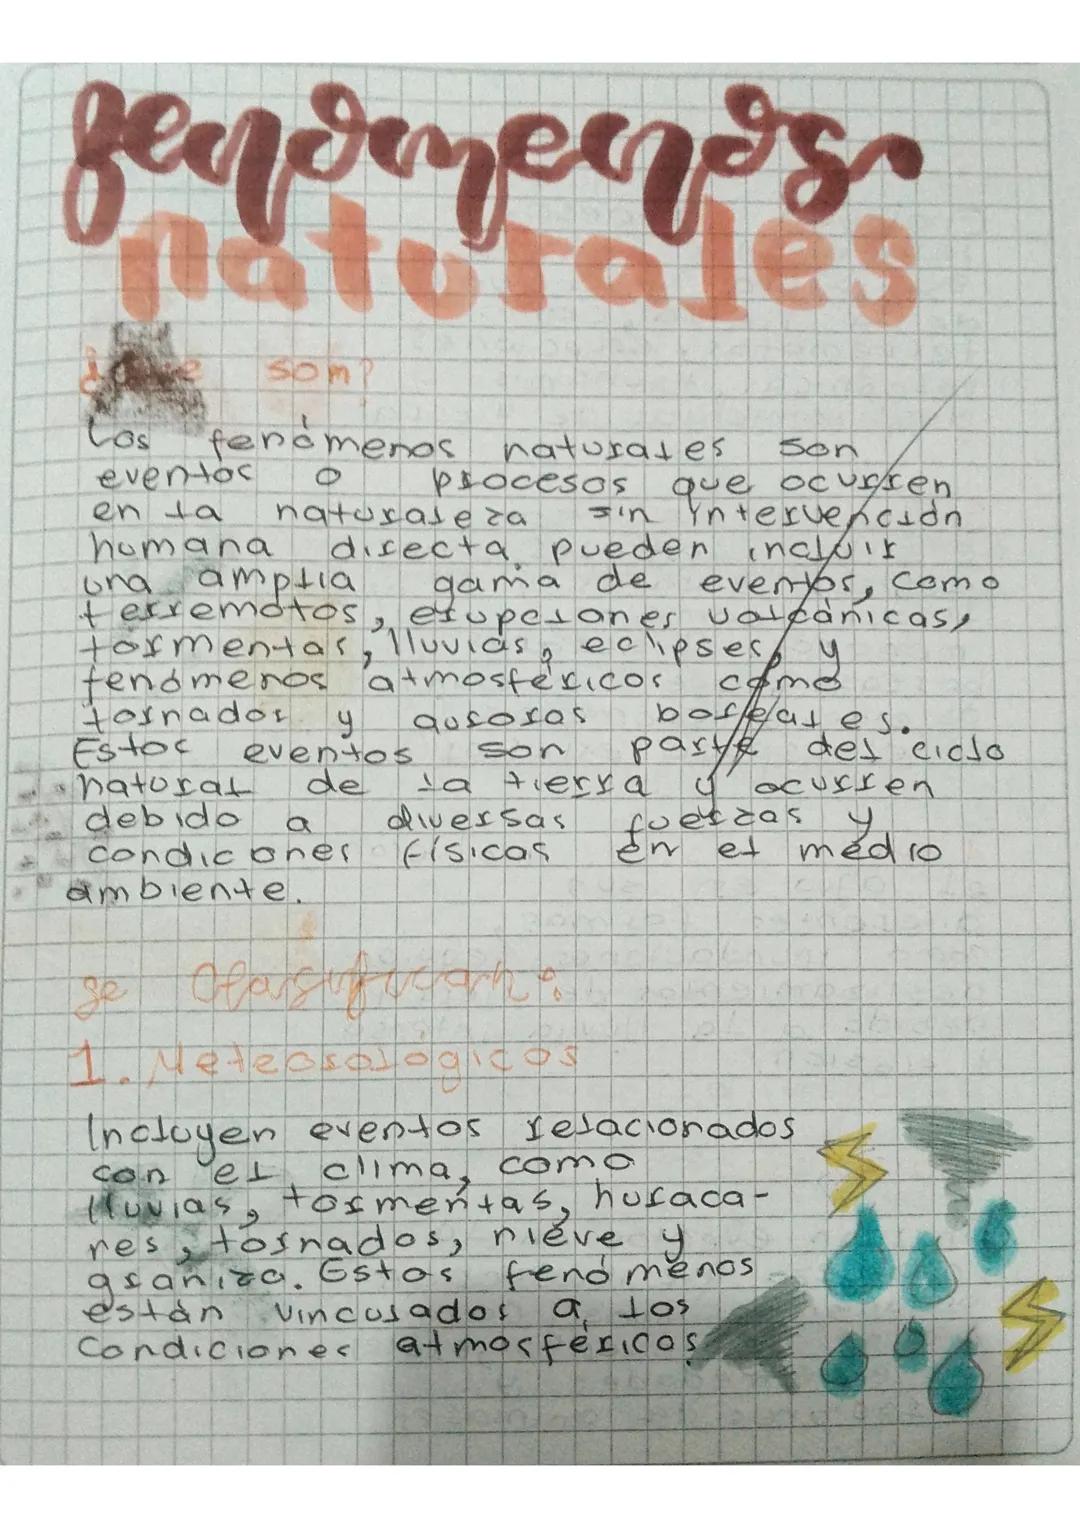 fenómenos
naturales
¿Que son?
Los fenómenos naturales son
eventos o procesos que ocurren
en la naturaleza sin intervención
humana directa pueden incluir
una amplia gama de eventos, como
terremotos, erupciones volcánicas,
tormentas, lluvias, eclipses, y
fenómenos atmosféricos como
tornados y auroras boreales.
Estos eventos son parte del ciclo
natural de la tierra y ocurren
debido a diversas fuerzas y
condiciones físicas en el medio
ambiente.
se Clasifican:
1. Meteorológicos
Incluyen eventos relacionados
con el clima, como
lluvias, tormentas, huraca-
nes, tornados, nieve y
granizo. Estos fenómenos
están vinculados a los
Condiciones atmosféricos